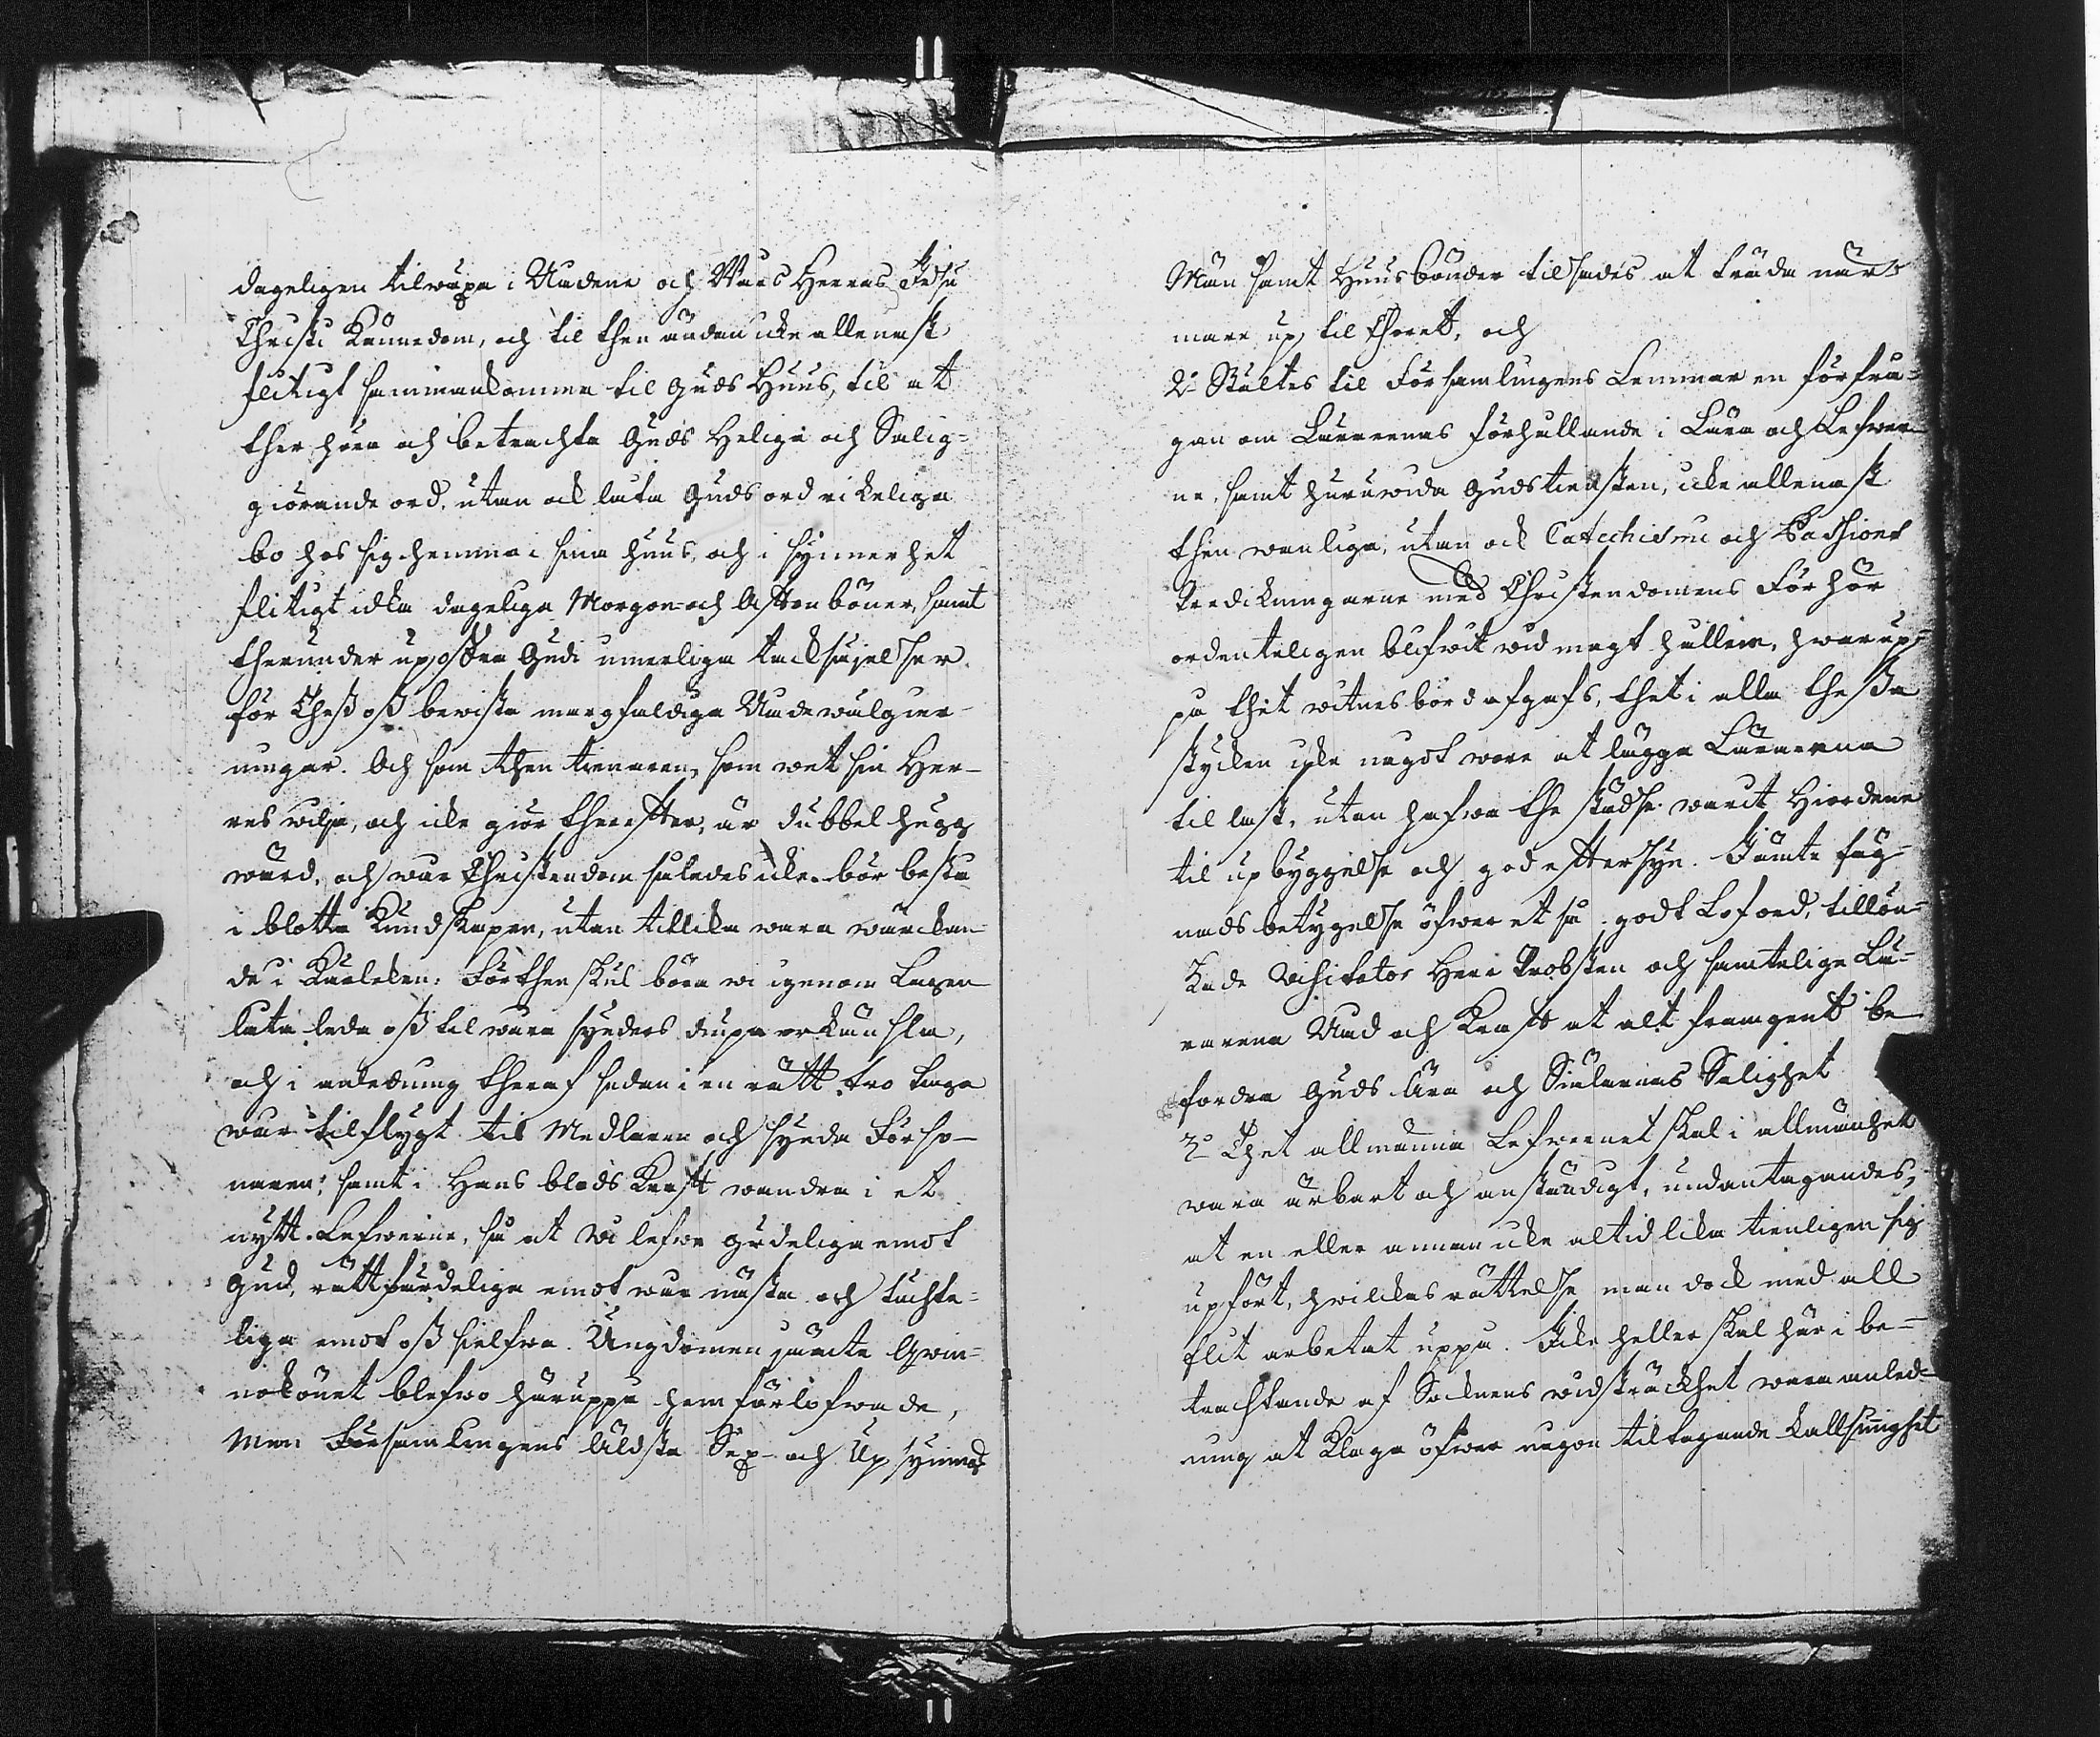 dageligen tilwäxa i Nådene och Wårs Herras Jesu
Christi Kännedom, och til then ändan icke allenast
flitigt sammankomma til Guds Huus, til at
ther höra och betrachta Guds Heliga och Salig-
giörande ord, utan ock låta Guds ord rikeliga
bo hos sig hemma i sina huus, och i synnerhet
flitigt idka dageliga Morgon- och Afftonböner, samt
therunder upoffra Gudi innerliga tacksäjelser
för Theß oß bewista mångfaldiga Nådewälgier-
ningar. Och som then tienaren, som wet sin Her-
res wilja, och icke giör therefter, är dubbel hugg
wärd, och wår Christendom således icke bör bestå
i blotta Kundskapen, utan tillika wara wärckan-
de i Kärleken: Förthenskul böra wi igenom Lagen
låta leda oß til wåra synders diupa erkänsla,
och i anledning theraf sedan i en rätt tro taga
wår tilflygt til Medlaren och synda Förso-
naren; samt i Hans blods Krafft wandra i et
nytt Lefwerne, så at wi lefwa gudeliga emot
Gud, rättfärdeliga emot wår nästa och tuchte-
liga emot oß sielfwa. Ungdomen jämte Qwin-
nokönet blefwo häruppå hemförlofwade,
Men Församlingens Äldsta Sex- och Upsynings
Män samt Huusbönder tilsades at träda när-
mare up til Choret, och
2:o Stältes til Församlingens Lemmar en förfrå-
gan om Lärarenas förhållande i Lära och Lefwer-
ne, samt huruwida Gudstiensten, icke allenast
then wanliga, utan ock Catechismi och Passions
Predikningarne med Christendomens Förhör
ordenteligen blifwit wid magt hållen, hwarup-
på thet witnesbörd afgafs, thet i alla theßa
stycken icke något ware at lägga Lärarena
til last, utan hafwa the städse warit Hiordene
til upbyggelse och god efftersyn. Jämte fäg-
nadsbetygelse öfwer et så godt Loford, tillön-
skade Visitator Herr Probsten och samtelige Lä-
rarena Nåd och Krafft at alt framgent be-
fordra Guds Ära och Siälarnas Salighet
3:o Thet allmänna Lefwernet skal i allmänhet
wara ärbart och anständigt, undantagandes,
at en eller annan icke altid lika tienligen sig
upfört, hwilkas rättelse man dock med all
flit arbetat uppå. Icke heller skal här i be-
tracktande af Socknens widsträckhet wara anled-
ning at klaga öfwer någon tiltagande kallsinnighet